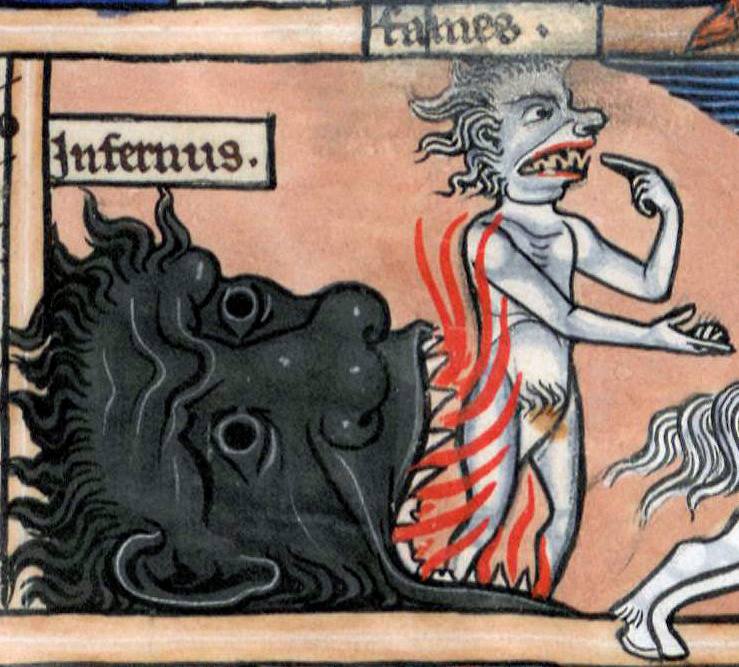 fames.
Infernus.